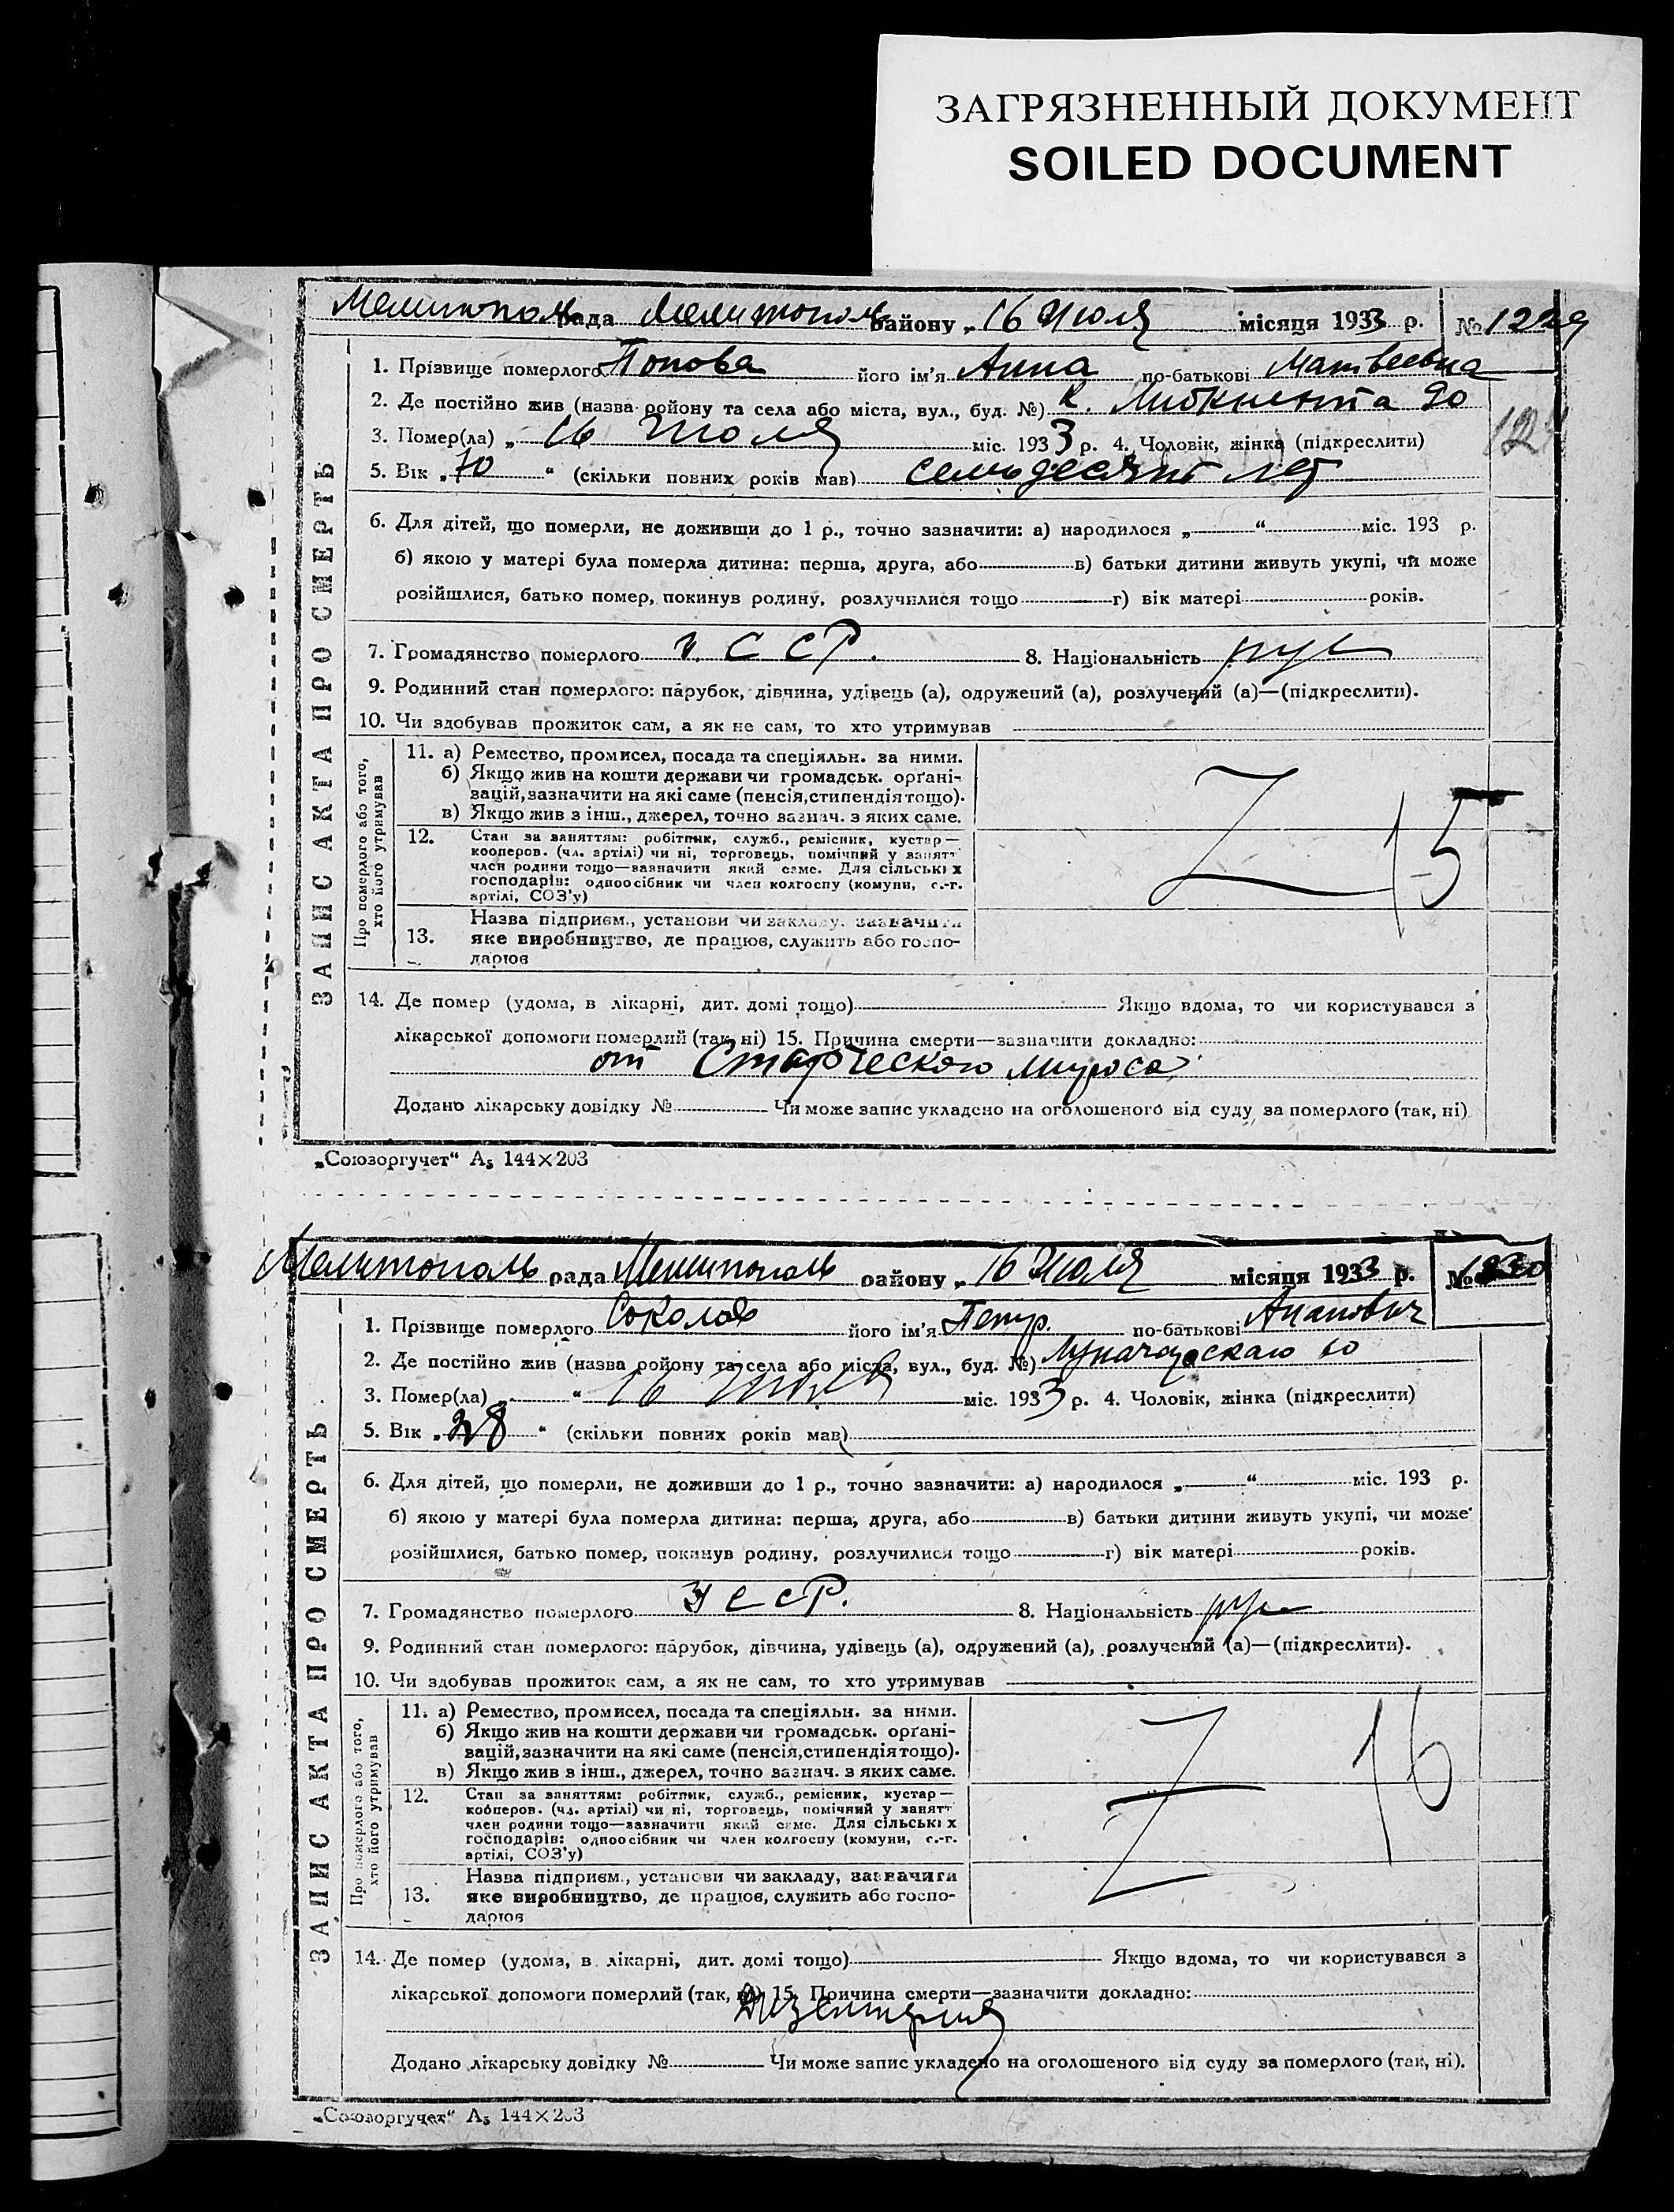 ЗАГРЯЗНЕННЫЙ ДОКУМЕНТ
SOILED DOCUMENT
Мелитополь рада Мелитополь району „ 16 Июля місяця 1933 р. № 1229
1. Прізвище померлого Попова його ім'я Анна по-батькові Матвеевна
2. Де постійно жив (назва ройону та села або міста, вул., буд. №) К. Либкнехта 20
3. Помер(ла) „ 16 Июля міс. 1933 р. 4. Чоловік, жінка (підкреслити)
5. Вік „ 70 “ (скільки повних років мав) семьдесят лет
6. Для дітей, що померли, не доживши до 1 р., точно зазначити: а) народилося „ “ міс. 193 р.
б) якою у матері була померла дитина: перша, друга, або в) батьки дитини живуть укупі, чи може
розійшлися, батько помер, покинув родину, розлучилися тощо г) вік матері років.
7. Громадянство померлого УССР. 8. Національність рус
9. Родинний стан померлого: парубок, дівчина, удівець (а), одружений (а), розлучений (а)—(підкреслити).
10. Чи здобував прожиток сам, а як не сам, то хто утримував
11. а) Ремество, промисел, посада та спеціяльн. за ними.
б) Якщо жив на кошти держави чи громадськ. орґані-
зацій, зазначити на які саме (пенсія, стипендія тощо).
в) Якщо жив з інш., джерел, точно зазнач. з яких саме.
12. Стан за заняттям: робітник, служб., ремісник, кустар—
кооперов. (чл. артілі) чи ні, торговець, помічний у занятт
член родини тощо—зазначити який саме. Для сільськіх
господарів: одноосібник чи член колгоспу (комуни, с.-г.
артілі, СОЗ'у)
15
13. Назва підприєм., установи чи закладу, зазначити
яке виробництво, де працює, служить або госпо-
дарює
14. Де помер (удома, в лікарні, дит. домі тощо) Якщо вдома, то чи користувався з
лікарської допомоги померлий (так, ні) 15. Причина смерти—зазначити докладно:
от Старческого
Додано лікарську довідку № Чи може запис укладено на оголошеного від суду за померлого (так, ні)
ЗАПИС АКТА ПРО СМЕРТЬ
Про померлого або того,
хто його утримував
„Союзоргучет“ А5 144×203
Мелитополь рада Мелитополь району „ 16 Июля місяця 1933 р. № 1230
1. Прізвище померлого Соколов його ім'я Петр. по-батькові
2. Де постійно жив (назва ройону та села або міста, вул., буд. №) Луначарскаго
3. Помер(ла) „ “ 16 Июля міс. 1933 р. 4. Чоловік, жінка (підкреслити)
5. Вік „ 28 “ (скільки повних років мав)
6. Для дітей, що померли, не доживши до 1 р., точно зазначити: а) народилося „ “ міс. 193 р.
б) якою у матері була померла дитина: перша, друга, або в) батьки дитини живуть укупі, чи може
розійшлися, батько помер, покинув родину, розлучилися тощо г) вік матері років.
7. Громадянство померлого УССР. 8. Національність рус
9. Родинний стан померлого: парубок, дівчина, удівець (а), одружений (а), розлучений (а)—(підкреслити).
10. Чи здобував прожиток сам, а як не сам, то хто утримував
11. а) Ремество, промисел, посада та спеціяльн. за ними.
б) Якщо жив на кошти держави чи громадськ. орґані-
зацій, зазначити на які саме (пенсія, стипендія тощо).
в) Якщо жив з інш., джерел, точно зазнач. з яких саме.
16
12. Стан за заняттям: робітник, служб., ремісник, кустар—
кооперов. (чл. артілі) чи ні, торговець, помічний у занятт
член родини тощо—зазначити який саме. Для сільськіх
господарів: одноосібник чи член колгоспу (комуни, с.-г.
артілі, СОЗ'у)
13. Назва підприєм., установи чи закладу, зазначити
яке виробництво, де працює, служить або госпо-
дарює
14. Де помер (удома, в лікарні, дит. домі тощо) Якщо вдома, то чи користувався з
лікарської допомоги померлий (так, ні) 15. Причина смерти—зазначити докладно:
Дизентерия
Додано лікарську довідку № Чи може запис укладено на оголошеного від суду за померлого (так, ні).
ЗАПИС АКТА ПРО СМЕРТЬ
Про померлого або того,
хто його утримував
„Союзоргучет“ А5 144×203